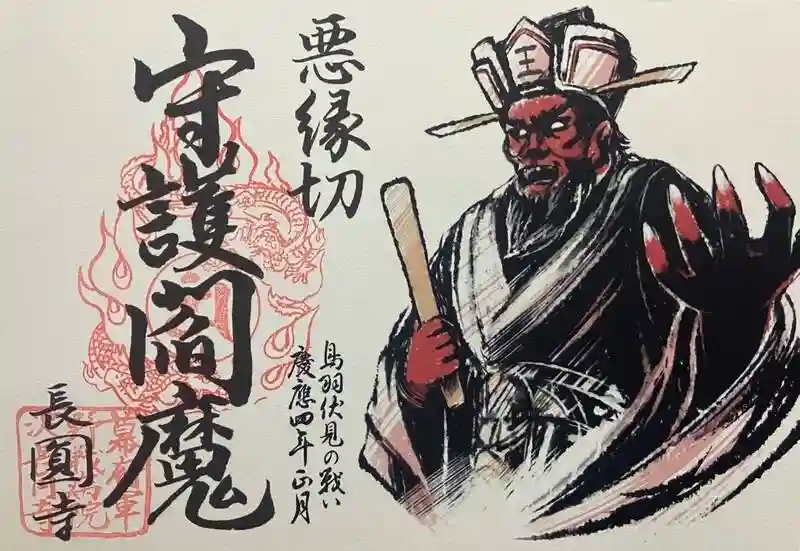 王
悪縁切
鳥羽伏見の戦い
慶應四年正月
守護閻魔
長圓寺
幕府軍